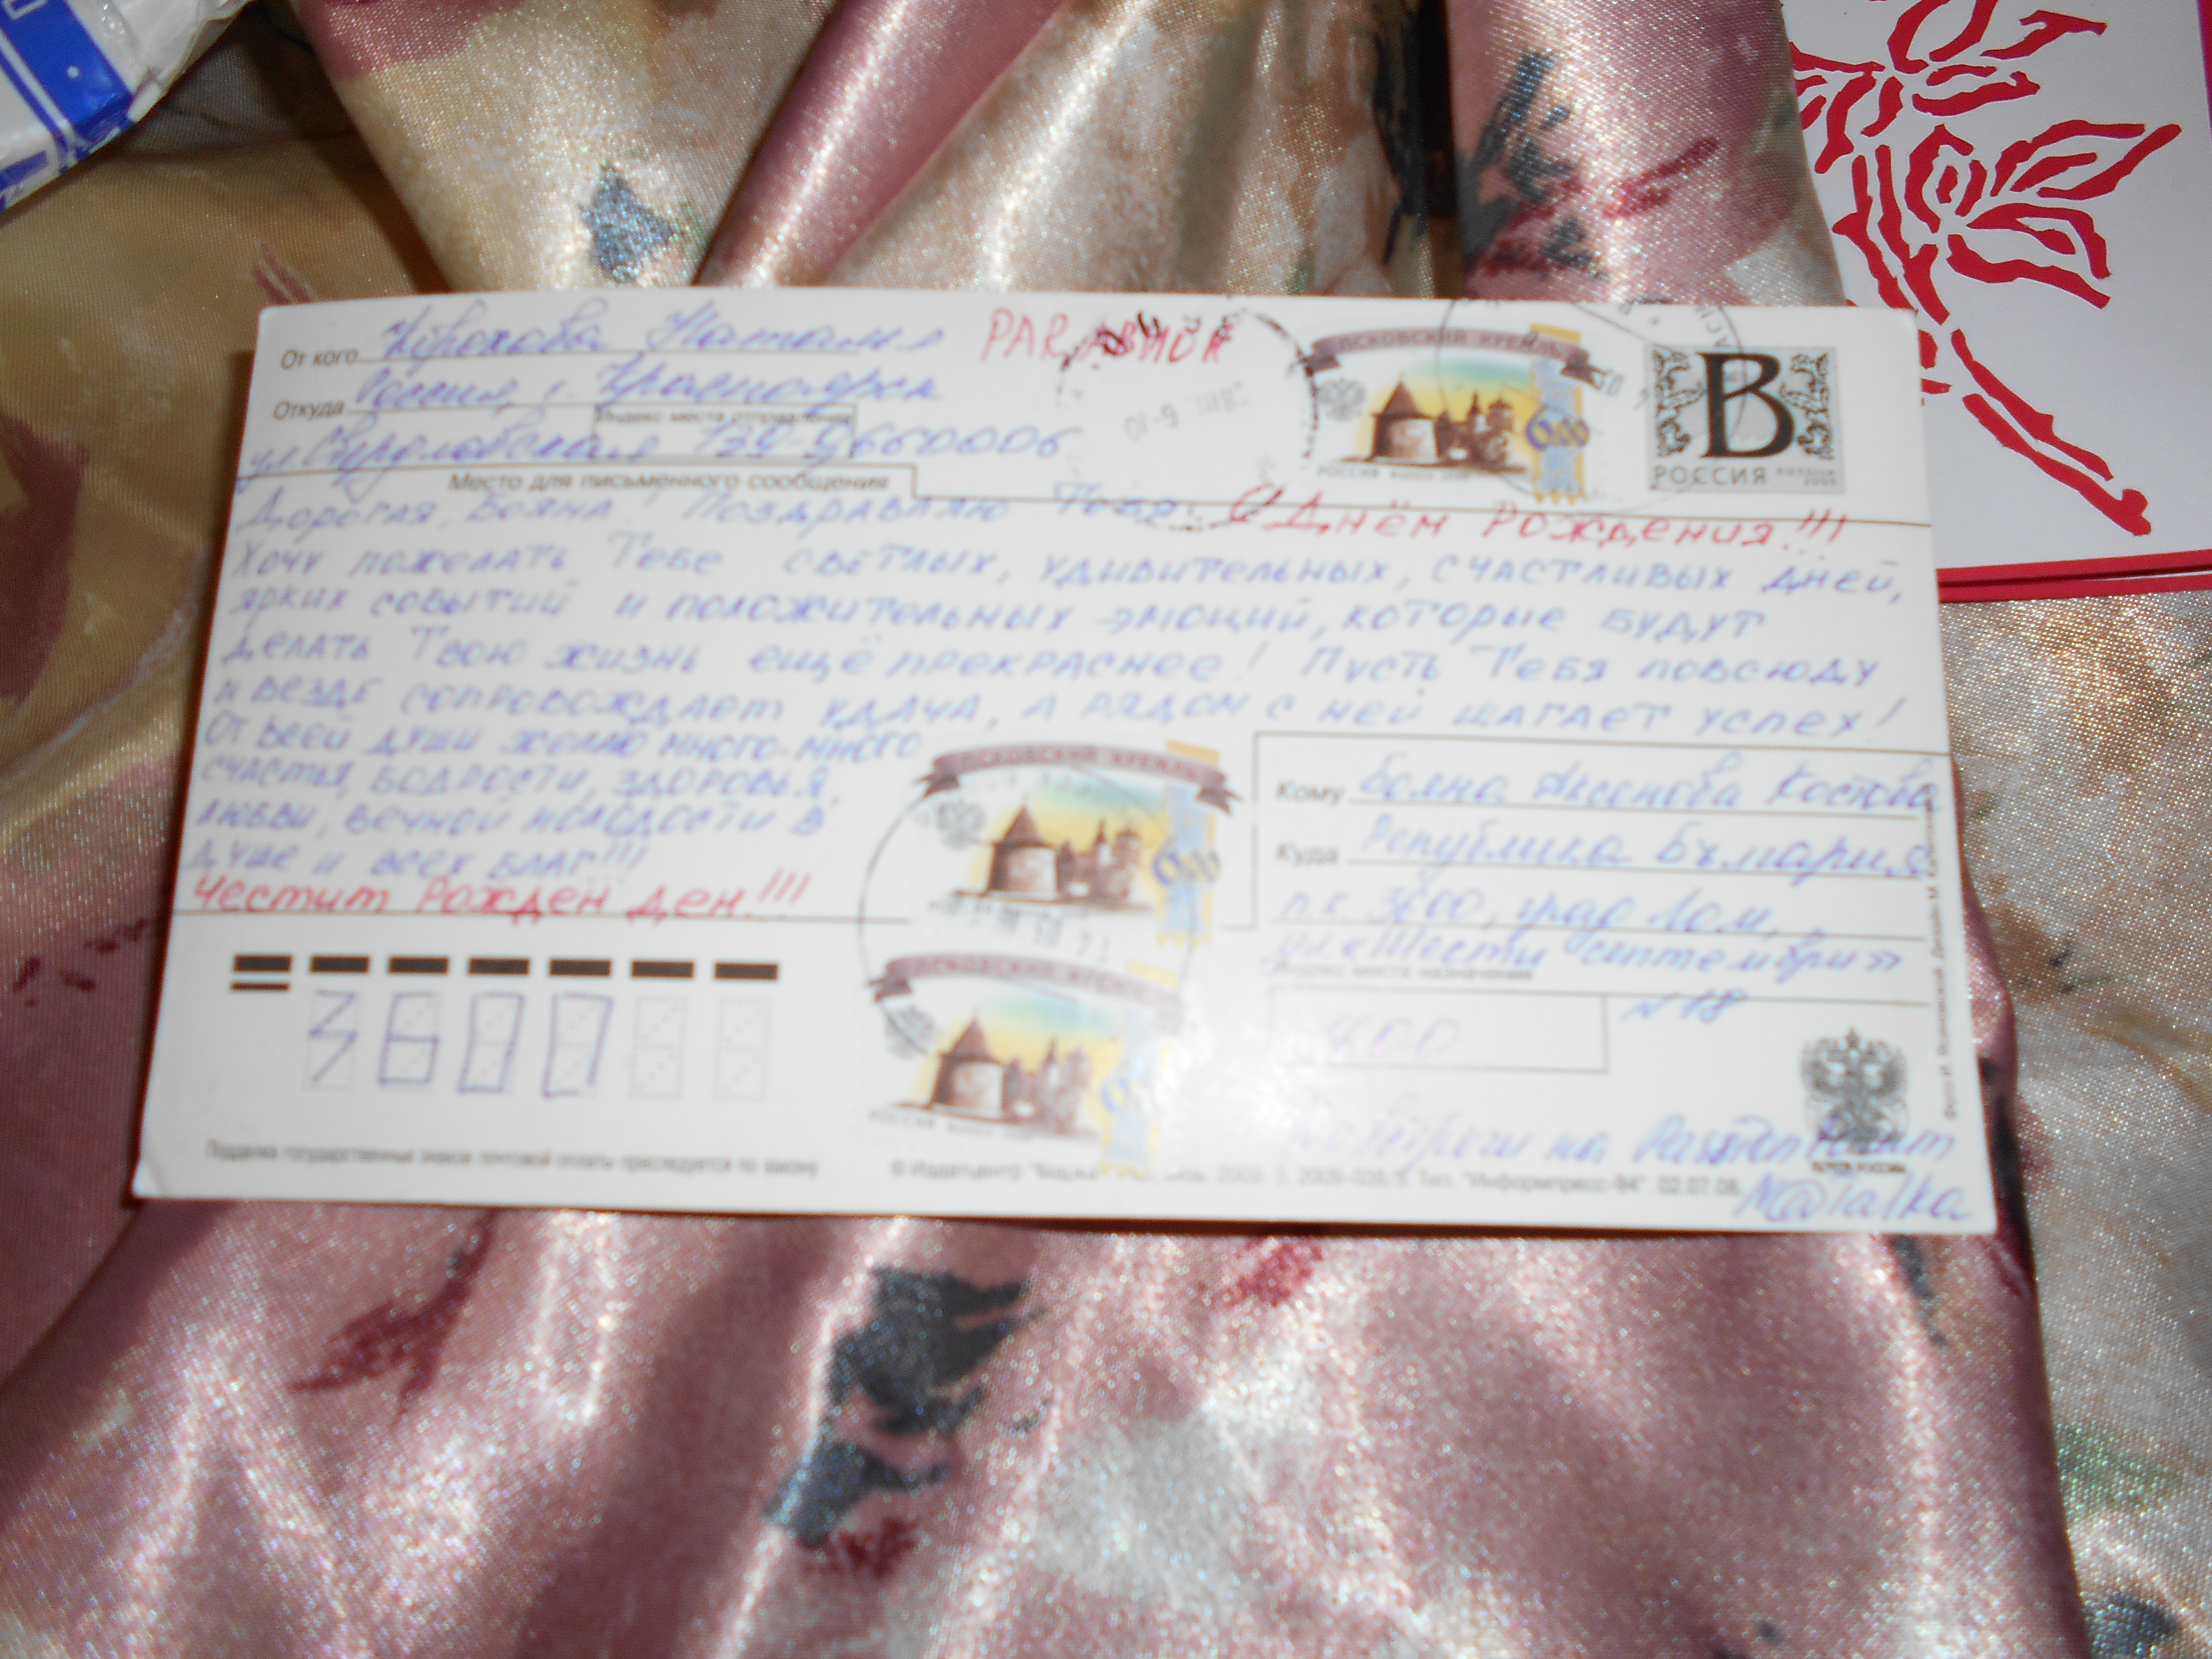 От кого Наталья
PAR AVION
Откуда Россия, г. Красноярск
Индекс места отправления
ул Свердловская 139-9 660006
ПСКОВСКИЙ КРЕМЛЬ
6,00
РОССИЯ
В
РОССИЯ
Место для письменного сообщения
Дорогая, Бояна! Поздравляю Тебя С Днём Рождения!!!
Хочу пожелать Тебе светлых, удивительных, счастливых дней,
ярких событий и положительных эмоций, которые будут
делать Твою жизнь ещё прекраснее! Пусть Тебя повсюду
и везде сопровождает удача, а рядом с ней шагает успех!
От всей души желаю много-много
счастья, бодрости, здоровья,
любви, вечной молодости в
душе и всех благ!!!
Честит Рожден ден!!!
ПСКОВСКИЙ КРЕМЛЬ
6,00
ПСКОВСКИЙ КРЕМЛЬ
РОССИЯ
Кому Бояна Асенова Костова
Куда Република България
п.к 3600, град Лом,
ул «Шести септември»
Индекс места назначения
№18
3600
на
M@Talka
Подделка государственных знаков почтовой оплаты преследуется по закону
© Издатцентр "Марка" 2009. З. 2009-038/5. Тип. "Информпресс-94". 02.07.08